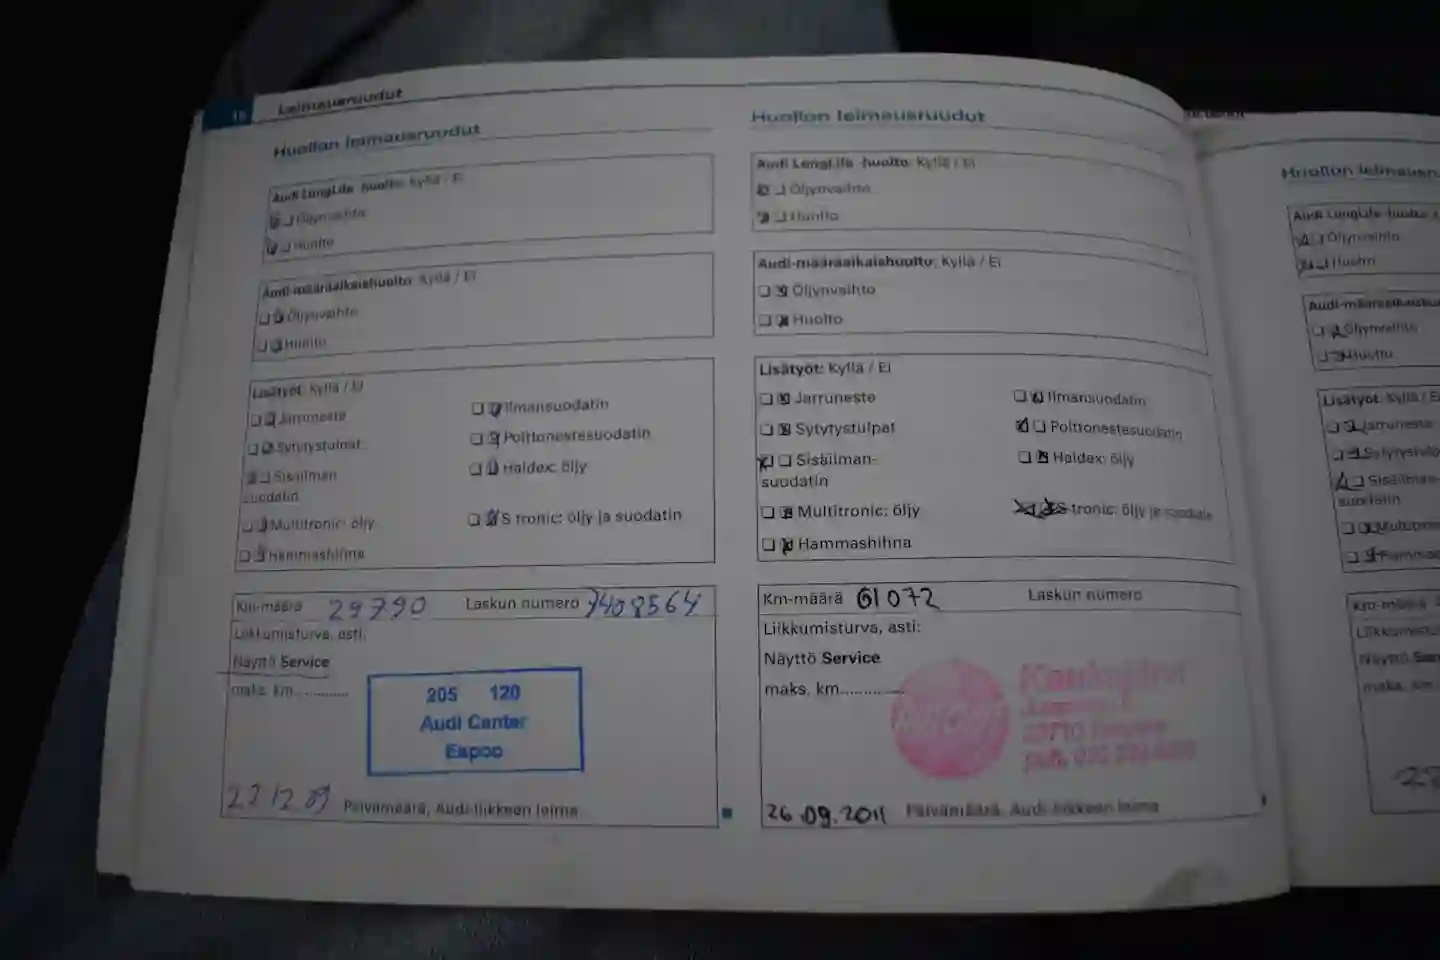 Leimausruudut
Huollon leimausruudut
Audi LongLife -huolto: Kyllä / Ei
Öljynvaihto
Huolto
Audi-määräaikaishuolto: Kyllä / Ei
Öljynvaihto
Huolto
Lisätyöt: Kyllä / Ei
Jarruneste
Ilmansuodatin
Sytytystulpat
Polttonestesuodatin
Sisäilman-
suodatin
Haldex: öljy
Multitronic: öljy
S tronic: öljy ja suodatin
Hammashihna
Km-määrä 29790 Laskun numero 7408564
Liikkumisturva, asti:
Näyttö Service
maks. km............
205 120
Audi Center
Espoo
Päivämäärä, Audi-liikkeen leima
Huollon leimausruudut
Audi LongLife -huolto: Kyllä / Ei
Öljynvaihto
Huolto
Audi-määräaikaishuolto: Kyllä / Ei
Öljynvaihto
Huolto
Lisätyöt: Kyllä / Ei
Jarruneste
Ilmansuodatin
Sytytystulpat
Polttonestesuodatin
Sisäilman-
suodatin
Haldex: öljy
Multitronic: öljy
S tronic: öljy ja suodatin
Hammashihna
Km-määrä 61072 Laskun numero
Liikkumisturva, asti:
Näyttö Service
maks. km..............
Kaukajärvi
26.09.2011 Päivämäärä, Audi-liikkeen leima
Audi LongLife-huolto
Öljynvaihto
Huolto
Öljynvaihto
Huolto
Lisätyöt: Kyllä /
Jarruneste
Sisäilman-
suodatin
Km-määrä
Näyttö
maks. km